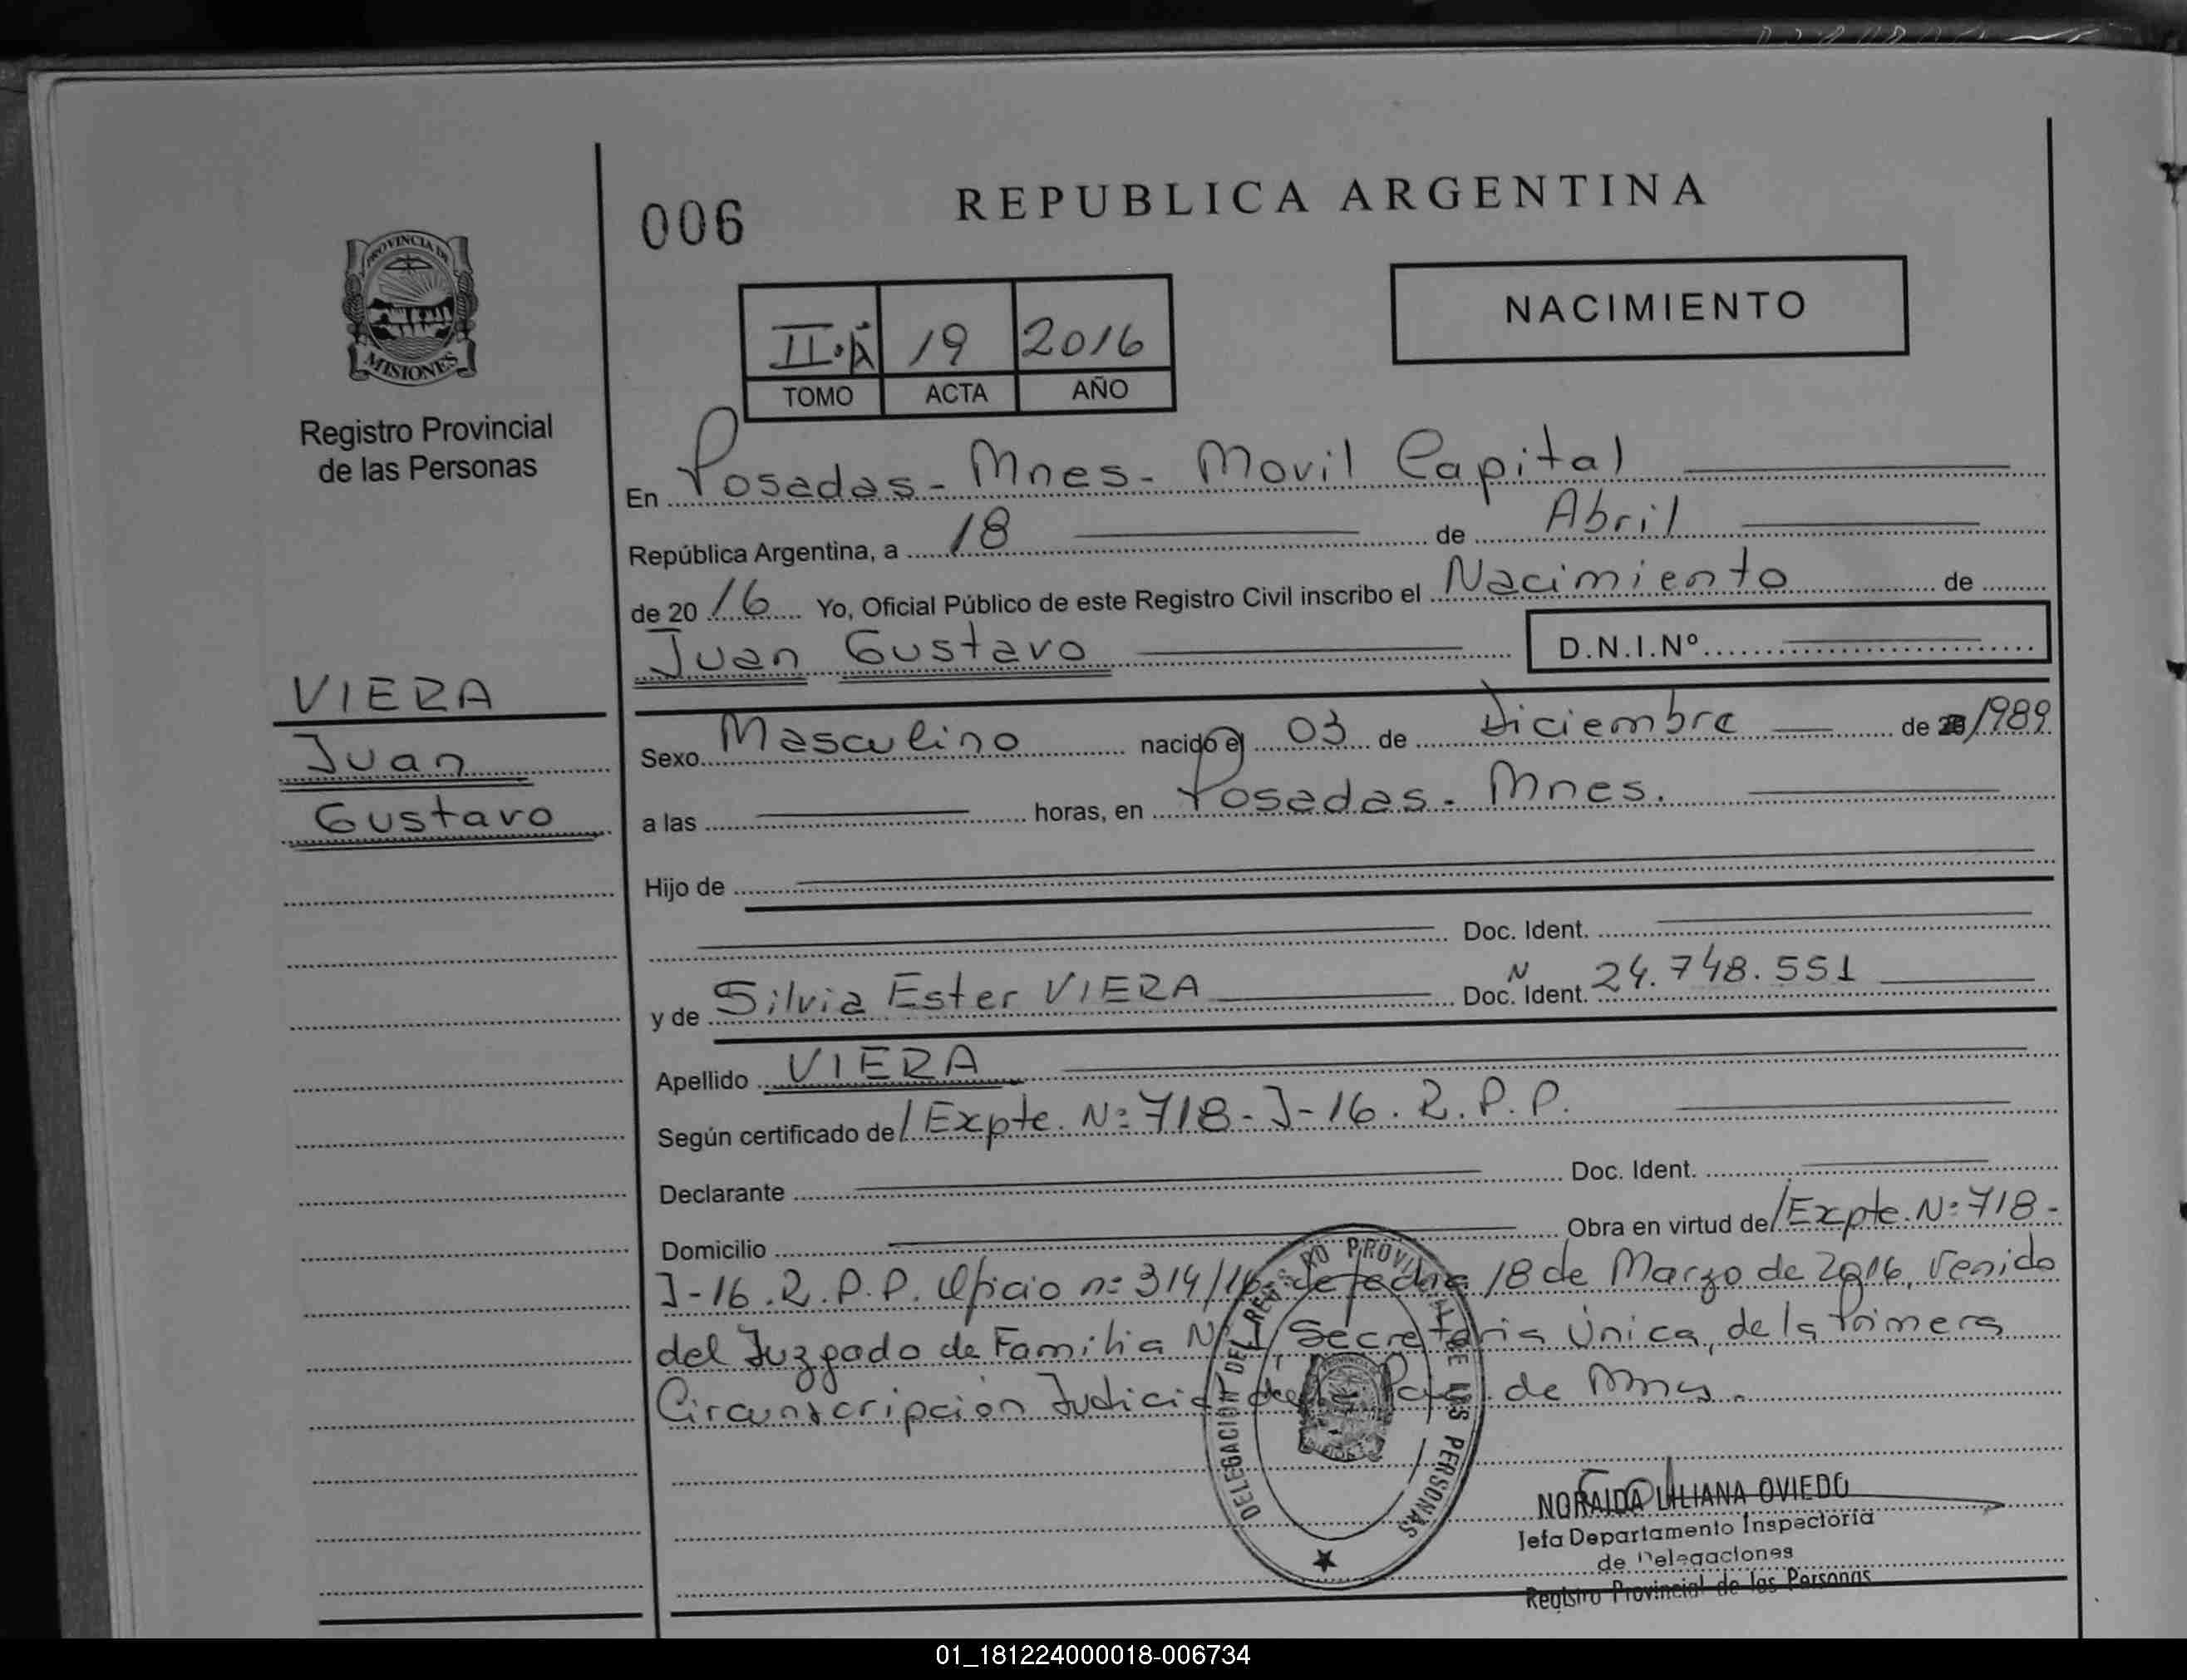 REPUBLICA ARGENTINA
006
NACIMIENTO
PROVINCIA DE
MISIONES
II·A 19 2016
TOMO ACTA AÑO
Registro Provincial
de las Personas
En Posadas - Mnes - Movil Capital
República Argentina, a 18 de Abril
de 2016 Yo, Oficial Público de este Registro Civil inscribo el Nacimiento de
Juan Gustavo D.N.I.Nº
VIERA
Juan
Gustavo
Sexo Masculino nacido el 03 de Diciembre de 1989
a las horas, en Posadas - Mnes.
Hijo de
Doc. Ident.
y de Silvia Ester VIERA Doc. Ident. N 24.748.551
Apellido VIERA
Según certificado de / Expte. Nº 718-J-16. R.P.P.
Declarante Doc. Ident.
Domicilio Obra en virtud de / Expte. Nº 718-
J-16. R.P.P. Oficio nº 314/16 de fecha 18 de Marzo de 2016, venido
del Juzgado de Familia Nº 1, Secretaria Única, de la Primera
Circunscripción Judicial de la Pcia. de Mnes.
DELEGACION DEL REGISTRO PROVINCIAL DE LAS PERSONAS
NORAIDA LILIANA OVIEDO
Jefa Departamento Inspectoria
de Delegaciones
Registro Provincial de las Personas
01_181224000018-006734